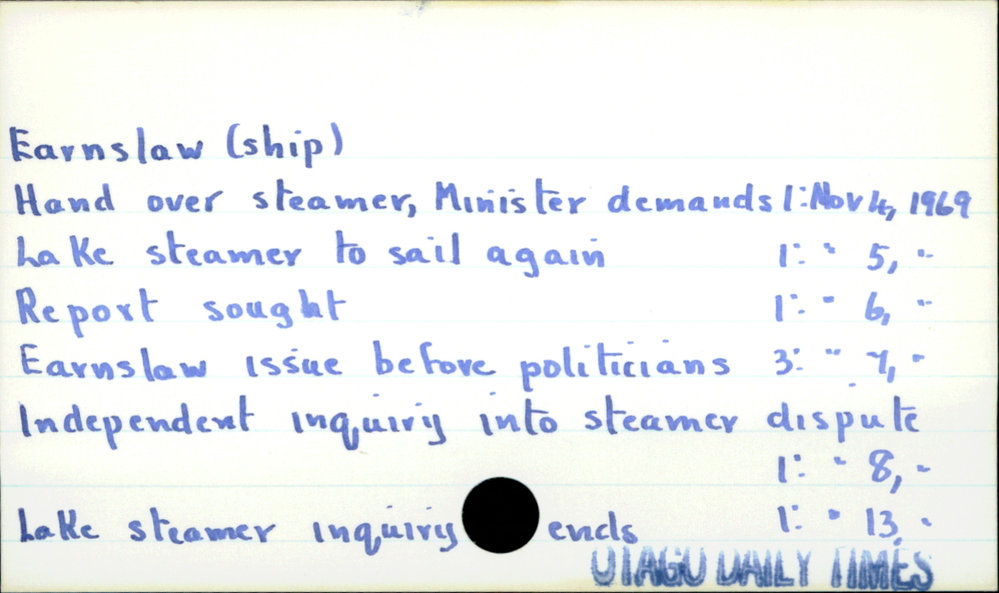 Earnslaw (ship)
Hand over steamer, Minister demands 1: Nov 4, 1969
Lake steamer to sail again 1: " 5, "
Report sought 1: " 6, "
Earnslaw issue before politicians 3: " 7, "
Independent inquiry into steamer dispute
1: " 8, "
Lake steamer inquiry ends 1: " 13, "
OTAGO DAILY TIMES